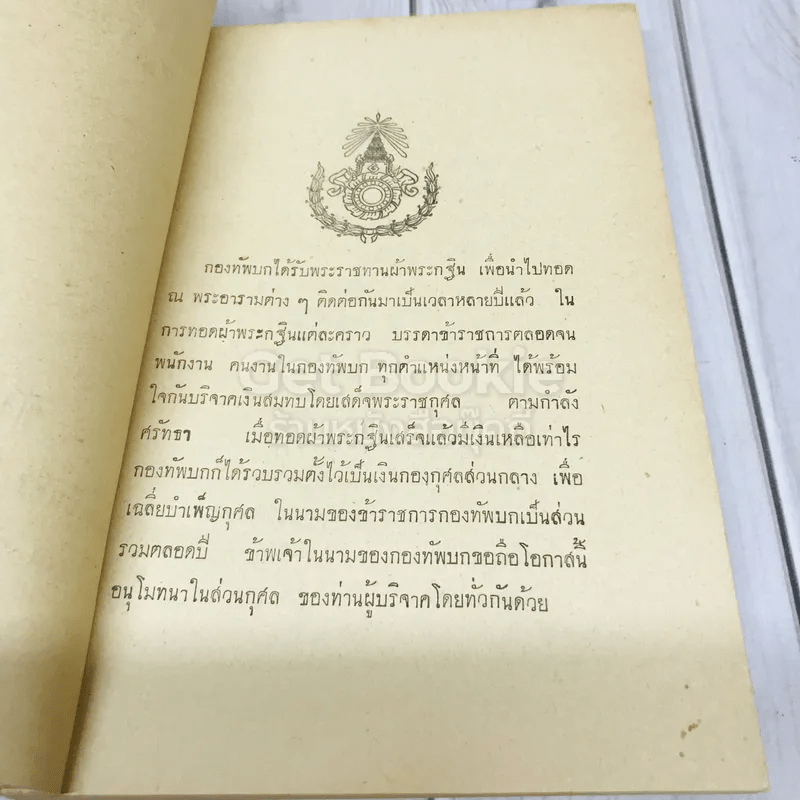 กองทัพบกได้รับพระราชทานผ้าพระกฐิน เพื่อนำไปทอด
ณ พระอารามต่าง ๆ ติดต่อกันมาเป็นเวลาหลายปีแล้ว ใน
การทอดผ้าพระกฐินแต่ละคราว บรรดาข้าราชการตลอดจน
พนักงาน คนงานในกองทัพบก ทุกตำแหน่งหน้าที่ ได้พร้อม
ใจกันบริจาคเงินสมทบโดยเสด็จพระราชกุศล ตามกำลัง
ศรัทธา เมื่อทอดผ้าพระกฐินเสร็จแล้วมีเงินเหลือเท่าไร
กองทัพบกก็ได้รวบรวมตั้งไว้เป็นเงินกองกุศลส่วนกลาง เพื่อ
เฉลี่ยบำเพ็ญกุศล ในนามของข้าราชการกองทัพบกเป็นส่วน
รวมตลอดปี ข้าพเจ้าในนามของกองทัพบกขอถือโอกาสนี้
อนุโมทนาในส่วนกุศล ของท่านผู้บริจาคโดยทั่วกันด้วย
Get Bookie